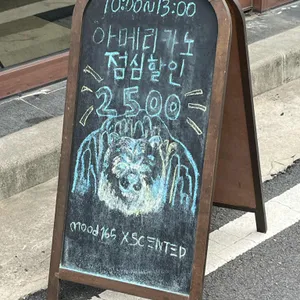 10:00~13:00
아메리카노
점심할인
2500
mood165 XSCENTED